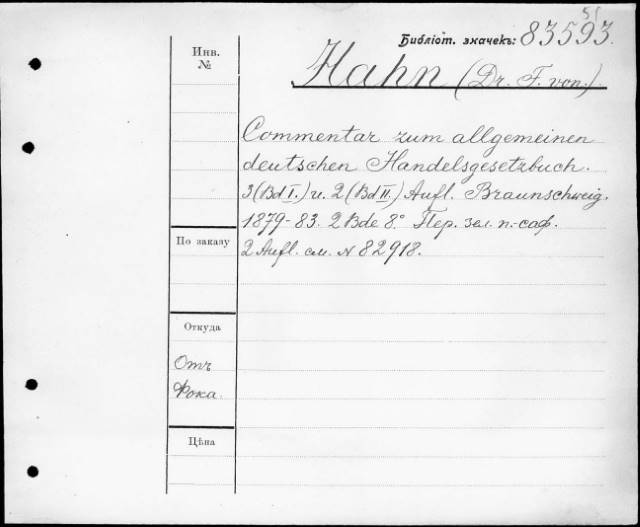 51
Библіот. значекъ: 83593.
Hahn (Dr. F. von.)
Инв.
№
Commentar zum allgemeinen
deutschen Handelsgesetzbuch.
3(Bd I.) u. 2 (Bd II.) Aufl. Braunschweig.
1879-83. 2 Bde 8.° Пер. зел. п.-саф.
2 Aufl. см. N 82918.
По заказу
Откуда
Отъ
Фока.
Цѣна